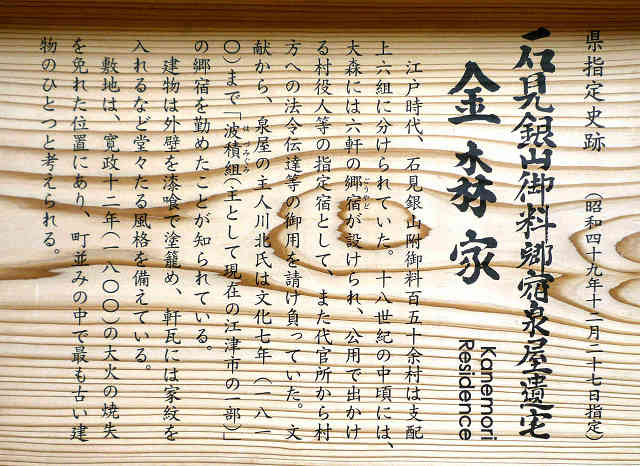 県指定史跡
(昭和四十九年十二月二十七日指定)
石見銀山御料郷宿泉屋遺宅
金森家
Kanemori
Residence
江戸時代、石見銀山附御料百五十余村は支配
上六組に分けられていた。十八世紀の中頃には、
大森には六軒の郷宿が設けられ、公用で出かけ
ごうやど
る村役人等の指定宿として、また代官所から村
方への法令伝達等の御用を請け負っていた。文
献から、泉屋の主人川北氏は文化七年(一八一
〇)まで「波積組(主として現在の江津市の一部)」
はづみぐみ
の郷宿を勤めたことが知られている。
建物は外壁を漆喰で塗籠め、軒瓦には家紋を
入れるなど堂々たる風格を備えている。
敷地は、寛政十二年(一八〇〇)の大火の焼失
を免れた位置にあり、町並みの中で最も古い建
物のひとつと考えられる。